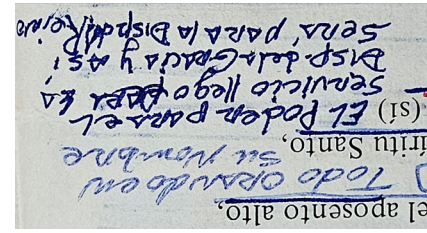 el aposento alto,
Todo orando en
su Nombre
íritu Santo,
(sí) EL Poder para el
servicio llego para la
Disp de la Gracia y así
será, para la Disp del Reino